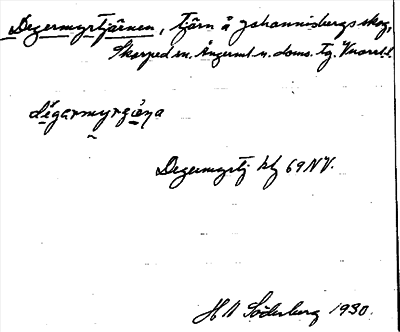 Degermyrtjärnen, tjärn å Johannisbergs skog,
Skorped sn. Ångerml. n. doms. tg.
dégarmyrǥæ̀ṇa
Degermyrtj kbl 69 NV.
H N Söderberg 1930.